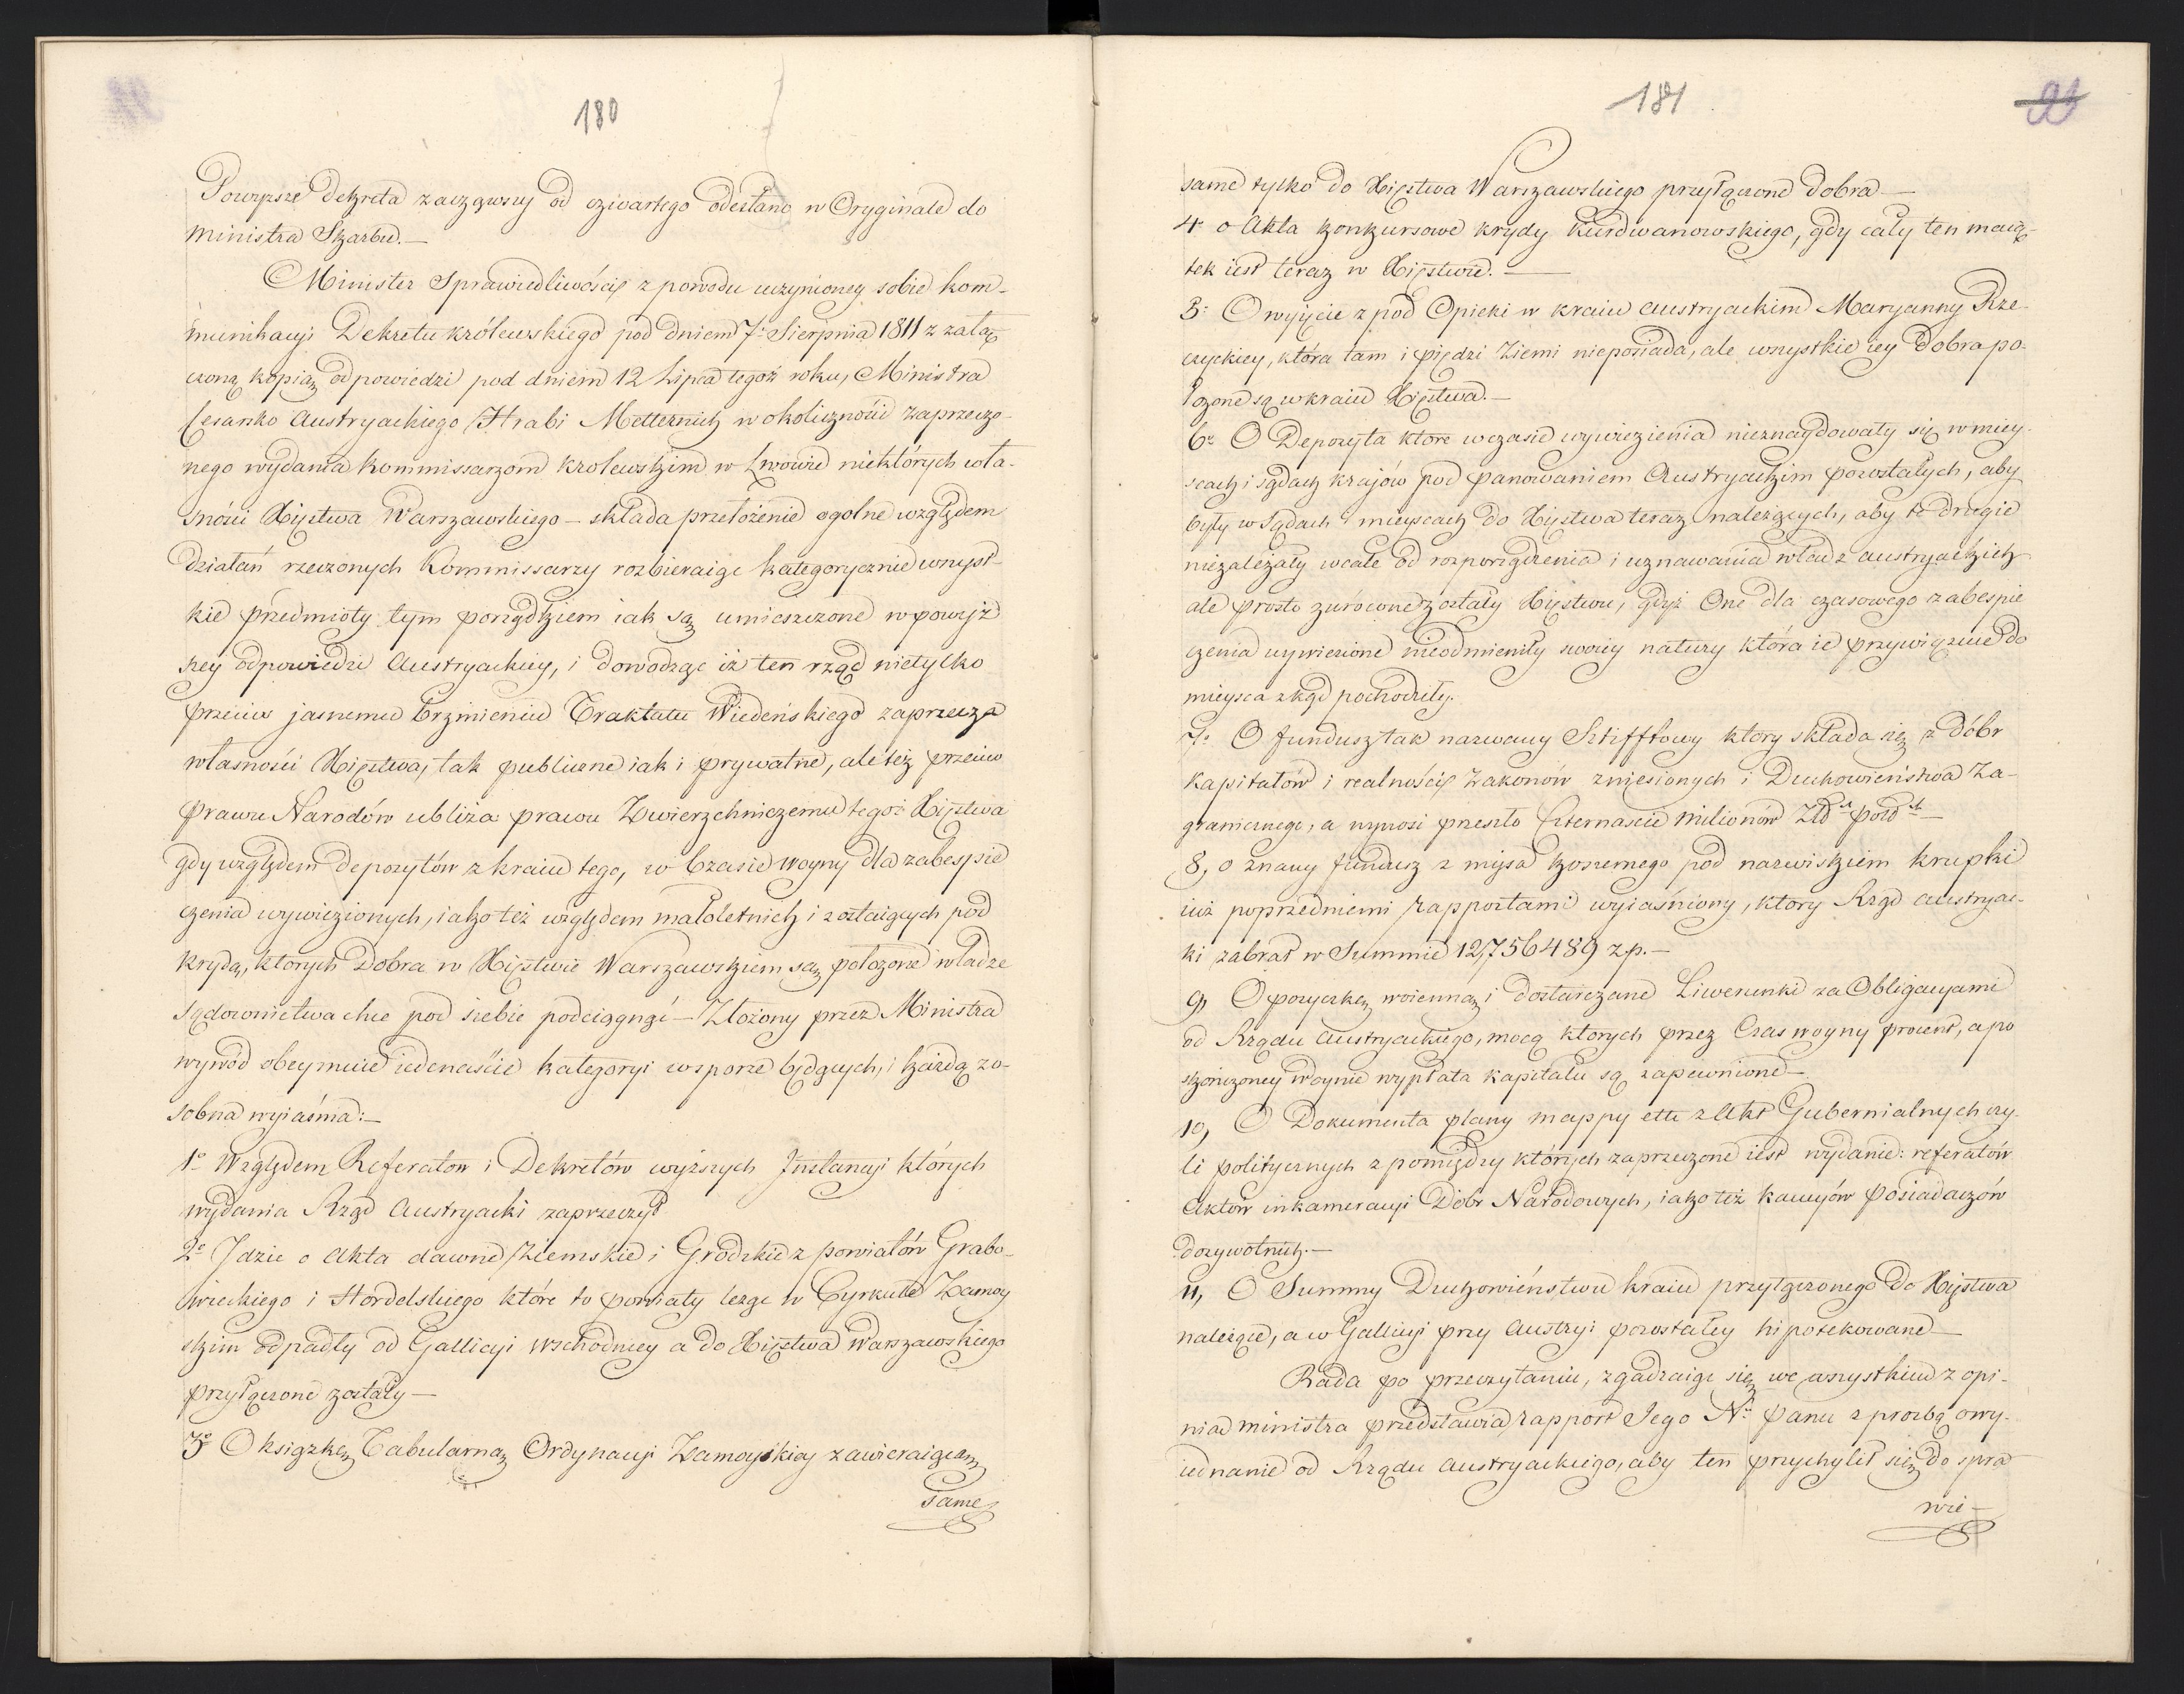 180
Powyższe Dekreta zacząwszy od czwartego odesłano w Oryginale do
Ministra Skarbu.—
Minister Sprawiedliwości z powodu uczynioney sobie kom-
munikacyi Dekretu królewskiego pod dniem 7: Sierpnia 1811 z załą-
czoną kopią odpowiedzi pod dniem 12 Lipca tegoż roku, Ministra
Cesarsko Austryackiego Hrabi Metternich w okoliczności zaprzeczo-
nego wydania Kommissarzom królewskim w Lwowie niektórych wła-
sności Xięstwa Warszawskiego — składa przełożenie ogolne względem
działań rzeczonych Kommissarzy rozbieraiąc kategorycznie wszyst-
kie przedmioty tym porządkiem iak są umieszczone w powyż-
szey odpowiedzi Austryackiey, i dowodząc iż ten rząd nietylko
przeciw jasnemu brzmieniu Traktatu Wiedeńskiego zaprzecza
własności Xięstwa, tak publiczne iak i prywatne, ale też przeciw
prawu Narodów ubliża prawu Zwierzchniczemu tegoż Xięstwa
gdy względem depozytów z kraiu tego, w Czasie woyny dla zabespie
czenia wywiezionych, iako też względem małoletnich i zostaiących pod
krydą, ktorych Dobra w Xięstwie Warszawskiem są położone władze
sądownictwa chce pod siebie podciągngć — Złożony przez Ministra
wywód obeymuie iedenaście kategoryi w sporze będących, i każdą zo-
sobna wyiaśnia:—
1º Względem Referatow i Dekretów wyższych Instancyi których
wydania Rząd Austryacki zaprzeczył
2º Idzie o Akta dawne Ziemskie i Grodzkie z powiatów Grabo-
wieckiego i Hordelskiego które to powiaty leżąc w Cyrkule Zamoy
skim odpadły od Gallicyi wschodniey a do Xięstwa Warszawskiego
przyłączone zostały —
3º O ksiązkę Tabularną Ordynacyi Zamoyskiey zawieraiącą
same
181
same tylko do Xięstwa Warszawskiego przyłączone dobra —
4º o Akta konkursowe krydy Kurdwanowskiego, gdy cały ten maią-
tek iest teraz w Xięstwie. —
5: O wyięcie z pod Opieki w kraiu austryackim Maryanny Rze-
czyckiey, która tam i piędzi ziemi nieposiada, ale wszystkie iey Dobra po-
łożone są w kraiu Xięstwa.—
6º O Depozyta ktore w czasie wywiezienia nieznaydowały się w miey-
scach i sądach krajów pod panowaniem Austryackim pozostałych, aby
były w sądach i mieyscach do Xięstwa teraz należących, aby te drugie
niezależały wcale od rozporządzenia i uznawania władz austryackich
ale prosto zwrócone zostały Xięstwu, gdyż One dla czasowego zabespie
czenia wywiezione nieodmieniły swoiey natury która ie przywięzuie do
mieysca zkąd pochodziły.
7º O fundusz tak nazwany Sztifftowy ktory składa się z dóbr
kapitałów i realności zakonów zniesionych i Duchowieństwa Za-
granicznego, a wynosi przeszło Czternaście milionów Złch polch —
8, o znany fundusz z mięsa koszernego pod nazwiskiem krupki
iuż poprzedniemi rapportami wyiaśniony, ktory Rząd Austryac-
ki zabrał w Summie 12,756489 zp.—
9, O pożyczkę woienną i dostarczane Liwerunki za Obligacyami
od Rządu Austryackiego, mocą ktorych przez Czas woyny procent, a po
skończoney woynie wypłata kapitału są zapewnione —
10, O Dokumenta plany mappy etc z Akt Gubernialnych czy-
li politycznych z pomiędzy których zaprzeczone iest wydanie: referatów
Aktow inkameracyi Dóbr Narodowych, iako też kaucyów posiadaczów
dożywotnich.—
11, O Summy Duchowieństwu kraiu przyłączonego do Xięstwa
należące, a w Gallicyi przy Austryi pozostałey hipotekowane —
Rada po przeczytaniu, zgadzaiąc się we wszystkiem z opi-
nią ministra przedstawia rapport Jego Nº Panu z prozbą o wy-
iednanie od Rządu Austryackiego, aby ten przychylił się do spra
wie —